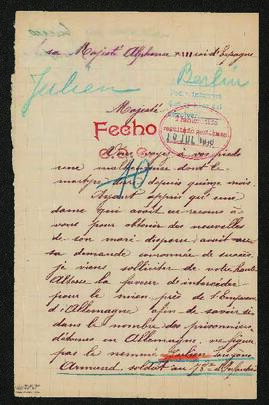 sa Majesté Alphonse XIII roi d'Espagne
Julien
Berlin
Majesté
Fecho
19 JUL 19
Vous voyez à vos pieds
une malheureuse dont le
martyre dure depuis quinze mois.
10
Ayant appris qu'une
dame qui avait eu recours à
vous pour obtenir des nouvelles
de son mari disparu avait vu
sa demande couronnée de succès,
je viens solliciter de votre haute
Altesse la faveur d'intercéder
pour le mien près de l'Empereur
d'Allemagne afin de savoir si
dans le nombre des prisonniers
détenus en Allemagne ne figure
pas le nommé Julien
Armand, soldat au